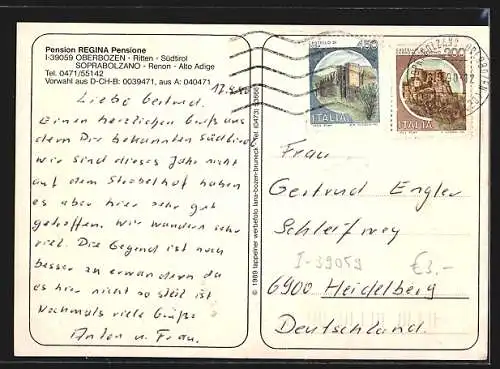 Pension REGINA Pensione
I-39059 OBERBOZEN - Ritten - Südtirol
SOPRABOLZANO - Renon - Alto Adige
Tel. 0471/55142
Vorwahl aus D-CH-B: 0039471, aus A: 040471
Liebe Gertrud.
Einen herzlichen Gruß aus
dem Dir bekannten Südtirol
wir sind dieses Jahr nicht
auf dem Strobelhof haben
es aber hier sehr gut
getroffen. Wir wandern sehr
viel. Die Gegend ist noch
besser zu erwandern da
es hier nicht so steil ist
Nochmals viele Grüße
Anton u. Frau.
© 1989 tappeiner werbefoto lana-bozen-bruneck
450
ITALIA
200
ITALIA
Frau
Gertrud Engler
Schleifweg
I-39059
€3.-
6900 Heidelberg
Deutschland.